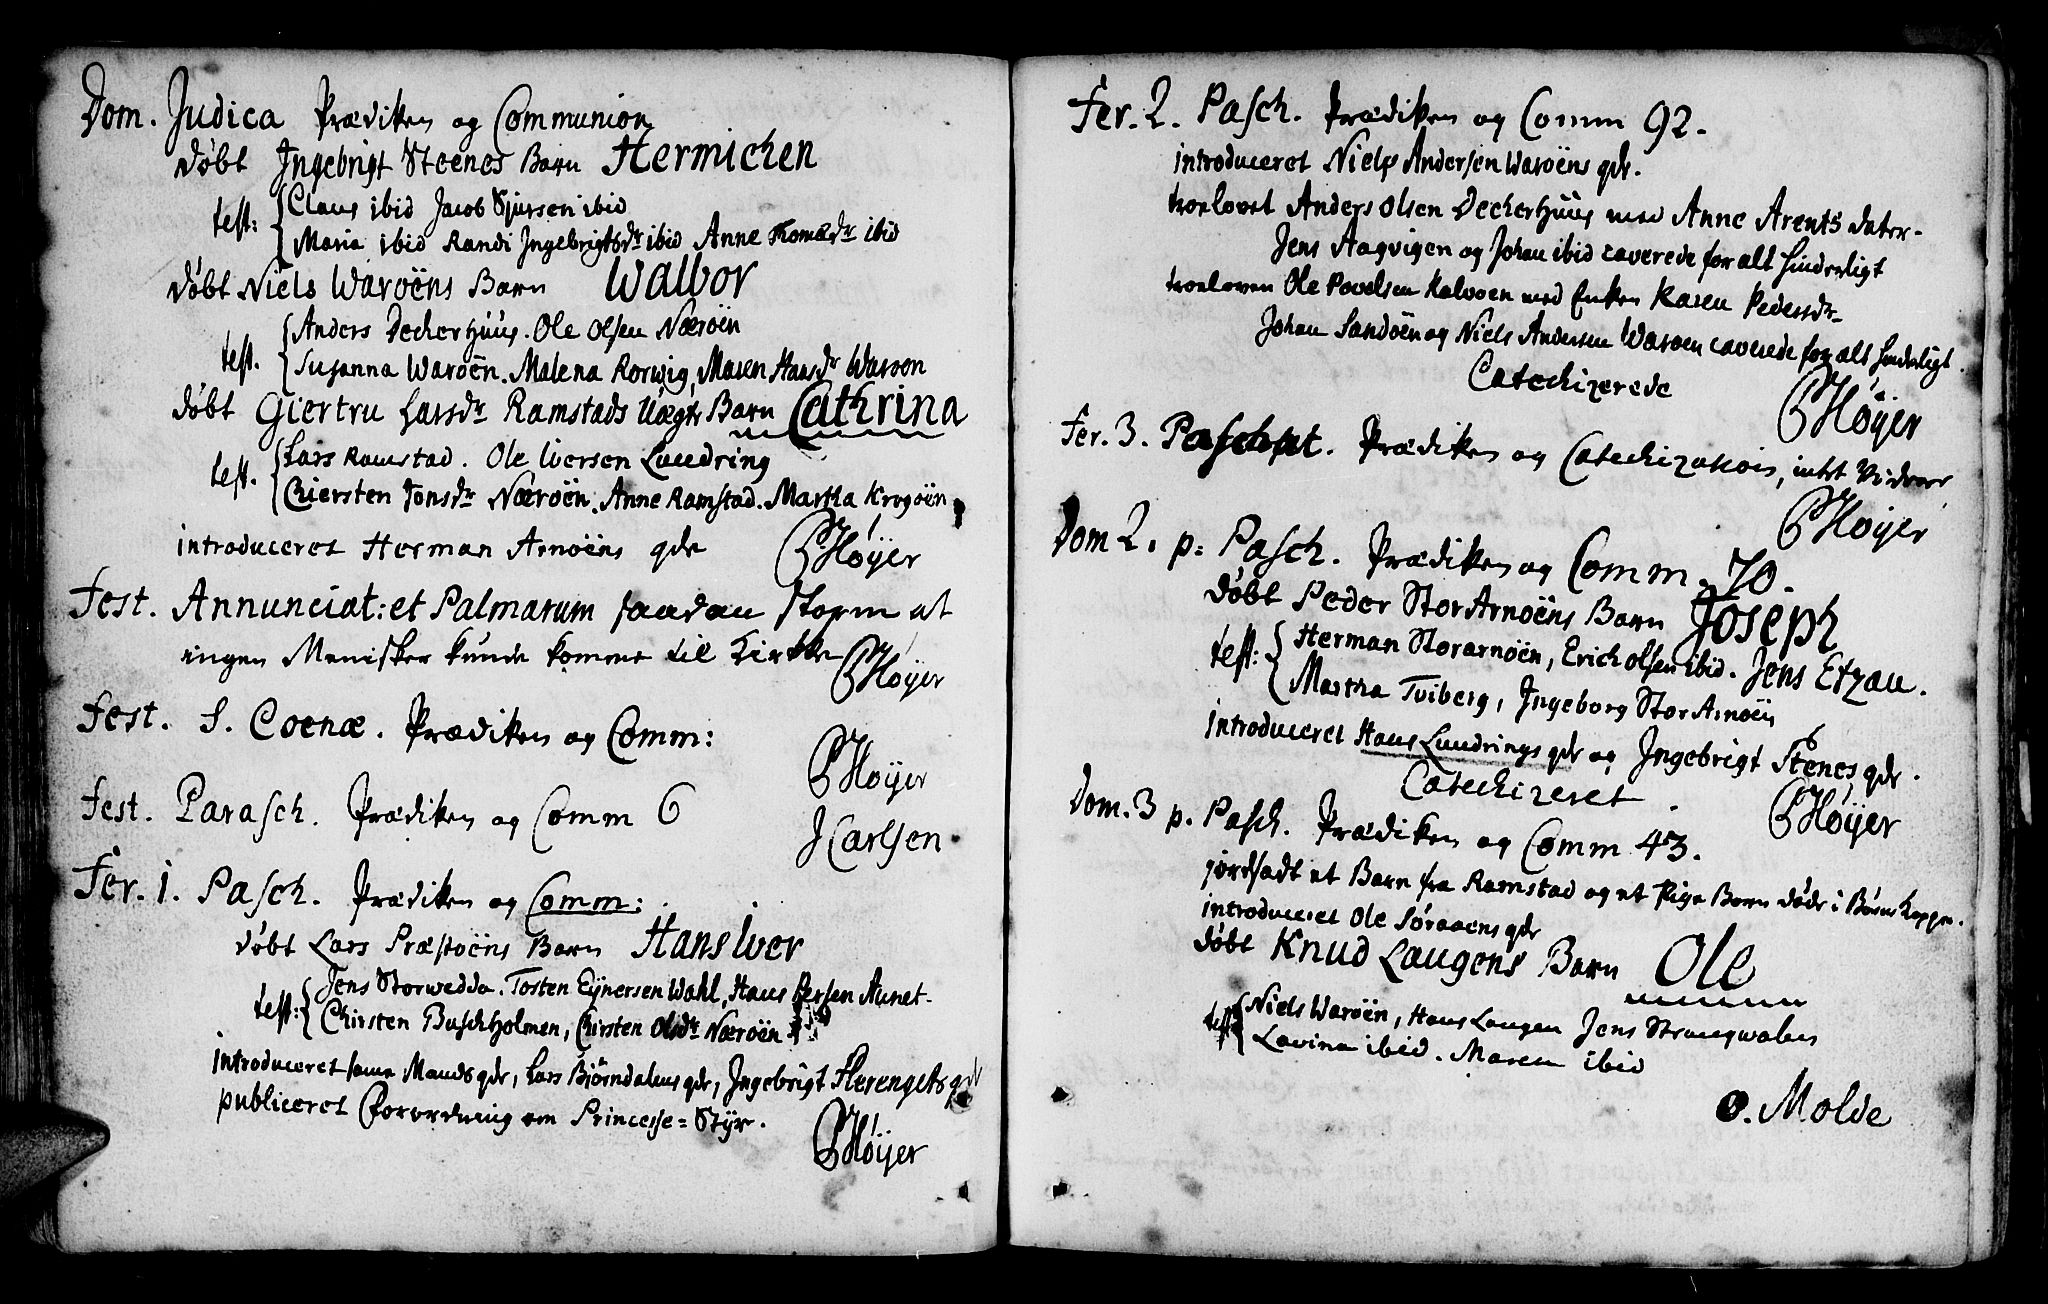 Dom. Judica Prædiken og Communion
døbt Ingebrigt Steenes Barn Hermichen
test: Claus ibid Jacob Sjursen ibid
Maria ibid Randi Ingebrigtsdr ibid Anne Tomædr ibid
døbt Niels Waroëns Barn Walbor
test. Anders Deckerhuus. Ole Olsen Næroën
Susanna Waroën. Malena Rorwig, Maren Hansdr Waroon
døbt Giertru Larsdr Ramstads Uægte Barn Cathrina
test. Lars Ramstad. Ole Iversen Lundring
Chiersten Jonsdr Næroën. Anne Ramstad. Martha Krogoën
introduceret Herman Arnoëns qde
GHøyer
Fest. Annunciat: et Palmarum saadan Storm at
ingen Menisker kunde komme til Kirke
GHøyer
Fest. S. Coenæ. Prædiken og Comm:
GHøyer
Fest. Parasch. Prædiken og Comm 6
JCarlsen
Fer. 1. Pasch. Prædiken og Comm:
døbt Lars Præstoëns Barn Hans Iver
test: Jens Storwedda. Tosten Eynersen Wahl, Hans Persen Aunet-
Chirsten Buschholmen, Chirsten Olsdr Næroën
introduceret samme Mands qde, Lars Bjørndalens qde, Ingebrigt Herengets qde
publiceret Forordning om Princesse-Styr.
GHøyer
Fer. 2. Pasch. Prædiken og Comm 92.
introduceret Niels Andersen Waroëns qde.
troelovet Anders Olsen Deckerhuus med Anne Arents dater-
Jens Aagvigen og Johan ibid caverede for alt hinderligt
troeloven Ole Povelsen Kalvoen med Enken Karen Pedersdr-
Johan Sandoën og Niels Andersen Waroen caverede for alt hinderligt.
Catechizerede
GHøyer
Fer. 3. Paschat. Prædiken og Catechization, intet Vidre
GHøyer
Dom 2. p: Pasch. Prædiken og Comm. 70.
døbt Peder StorArnoëns Barn Joseph
test: Herman Storarnoën, Erich Olsen ibid. Jens Etzau.
Martha Tviberg, Ingeborg StorArnoën
introduceret Hans Lundrings qde og Ingebrigt Stenes qde.
Catechizeret.
GHøyer
Dom. 3 p. Pasch. Prædiken og Comm 43.
jordsadt et Barn fra Ramstad og et Pige Barn døde i
introduceret Ole Søraaens qde
døbt Knud Laugens Barn Ole
test Niels Waroën, Hans Laugen Jens Strangwalen
Lavina ibid. Maren ibid
O. Molde